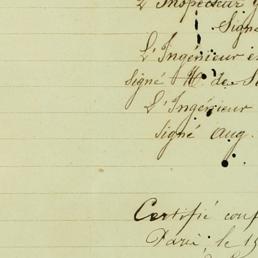 L'Inspecteur
Signé
L'Ingénieur e
signé H. de S
L'Ingénieur
signé Aug.
Certifié conf
Paris, le 19